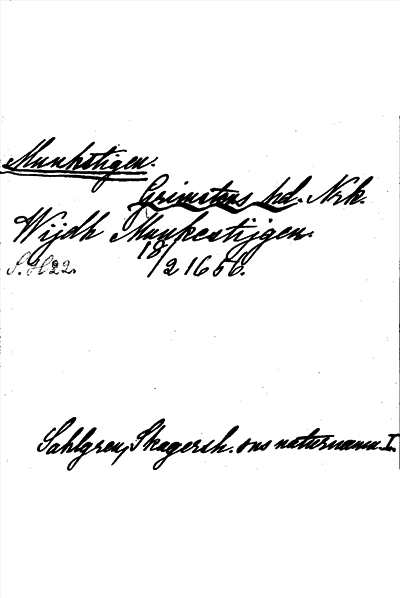 Munkstigen.
Grimstens hd. Nrk.
Wijdh Munkestijgen.
18/2 1656.
S. 22.
Sahlgren, Skagersh.-ons naturnamn. I.